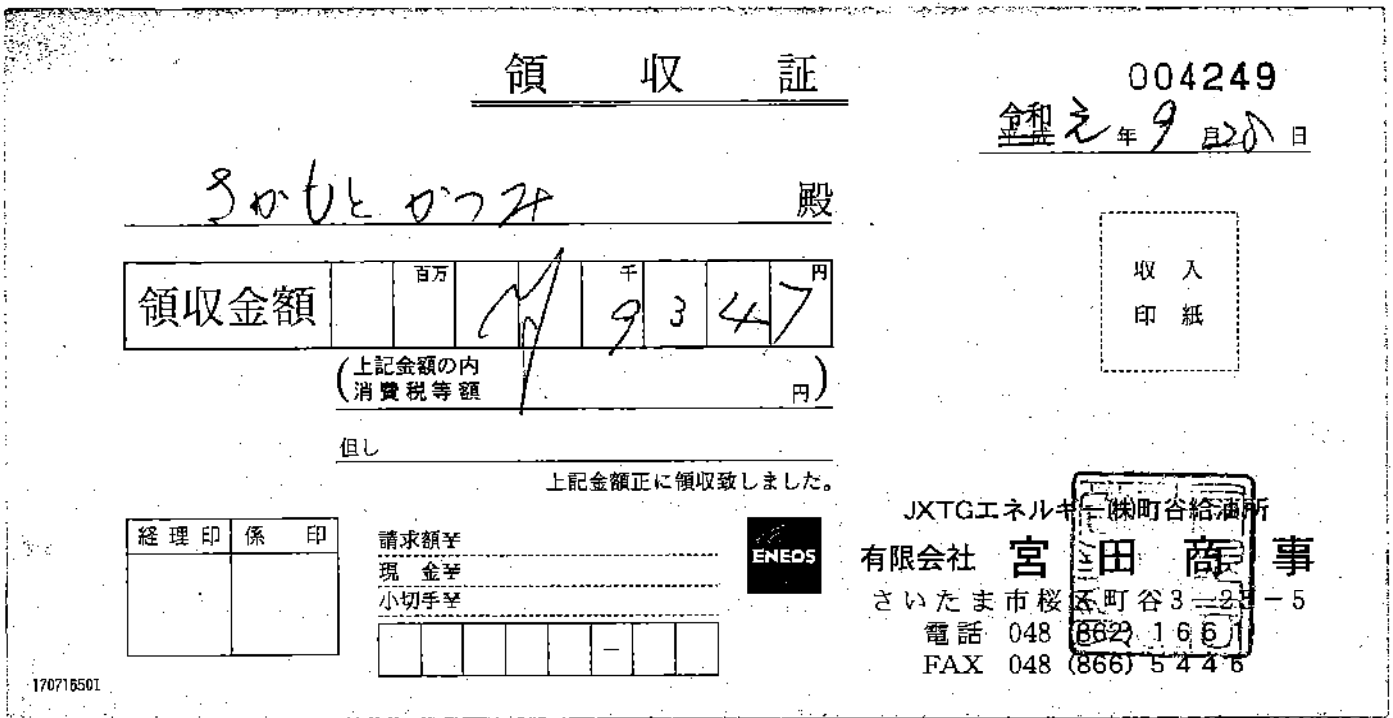 領収証
004249
令和 元年9月28日
さかもと かつみ 殿
領収金額 百万 ¥ 千 9 3 4 7 円
(上記金額の内
消費税等額 円)
但し
上記金額正に領収致しました。
経理印 係印
請求額¥
現金¥
小切手¥
-
ENEOS
収入
印紙
JXTGエネルギー㈱町谷給油所
有限会社 宮田商事
さいたま市桜区町谷3-23-5
電話 048 (862) 1661
FAX 048 (866) 5446
170716501